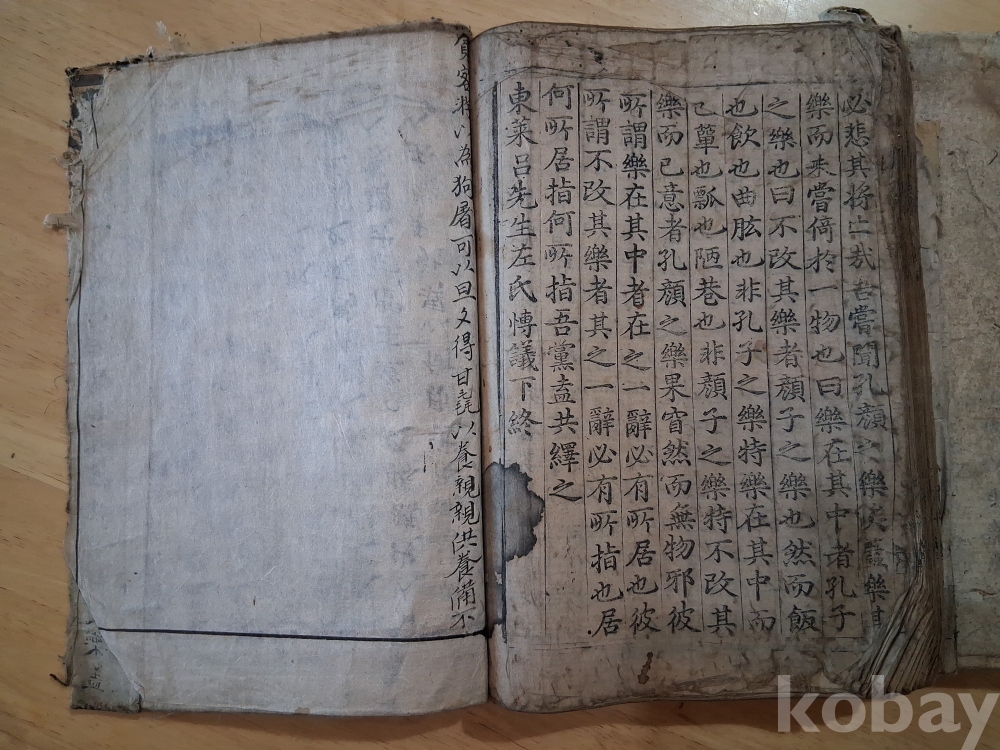 必悲其將亡哉君嘗聞孔顔之樂矣蓋樂其
樂而未嘗倚於一物也曰樂在其中者孔子
之樂也曰不改其樂者顔子之樂也然而飯
也飲也曲肱也非孔子之樂特樂在其中而
已簞也瓢也陋巷也非顔子之樂特不改其
樂而已意者孔顔之樂果窅然而無物邪彼
所謂樂在其中者在之一辭必有所居也彼
所謂不改其樂者其之一辭必有所指也居
何所居指何所指吾黨盍共繹之
東莱呂先生左氏博議下終
貧客將以為狗屠可以旦夕得甘毳以養親親供養備不
kobay